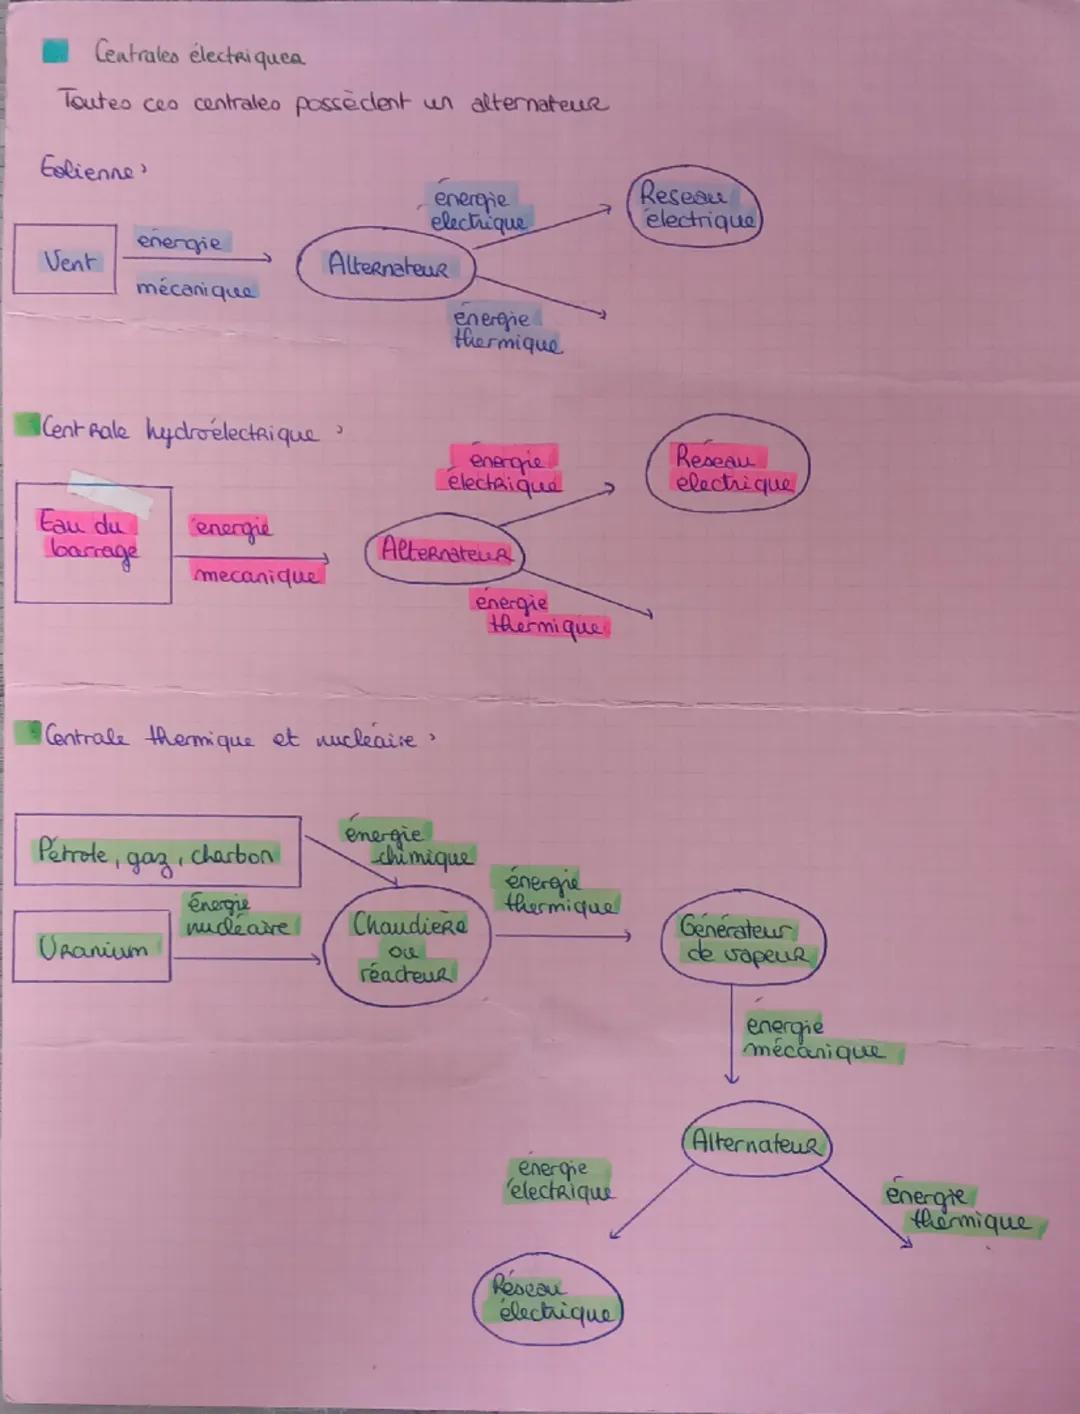 Centrales électriques
Toutes ces centrales possèdent un alternateur
Eolienne :
énergie
electrique
Reseau
électrique
Vent
énergie
mécanique
Alternateur
énergie
thermique
Centrale hydroélectrique :
énergie
électrique
Réseau
electrique
Eau du
barrage
énergie
mecanique
Alternateur
énergie
thermique
Centrale thermique et nucléaire :
Pétrole, gaz, charbon
énergie
chimique
énergie
thermique
Uranium
Énergie
nucléaire
Chaudière
ou
réacteur
Générateur
de vapeur
energie
mécanique
Alternateur
energie
électrique
énergie
thermique
Réseau
électrique